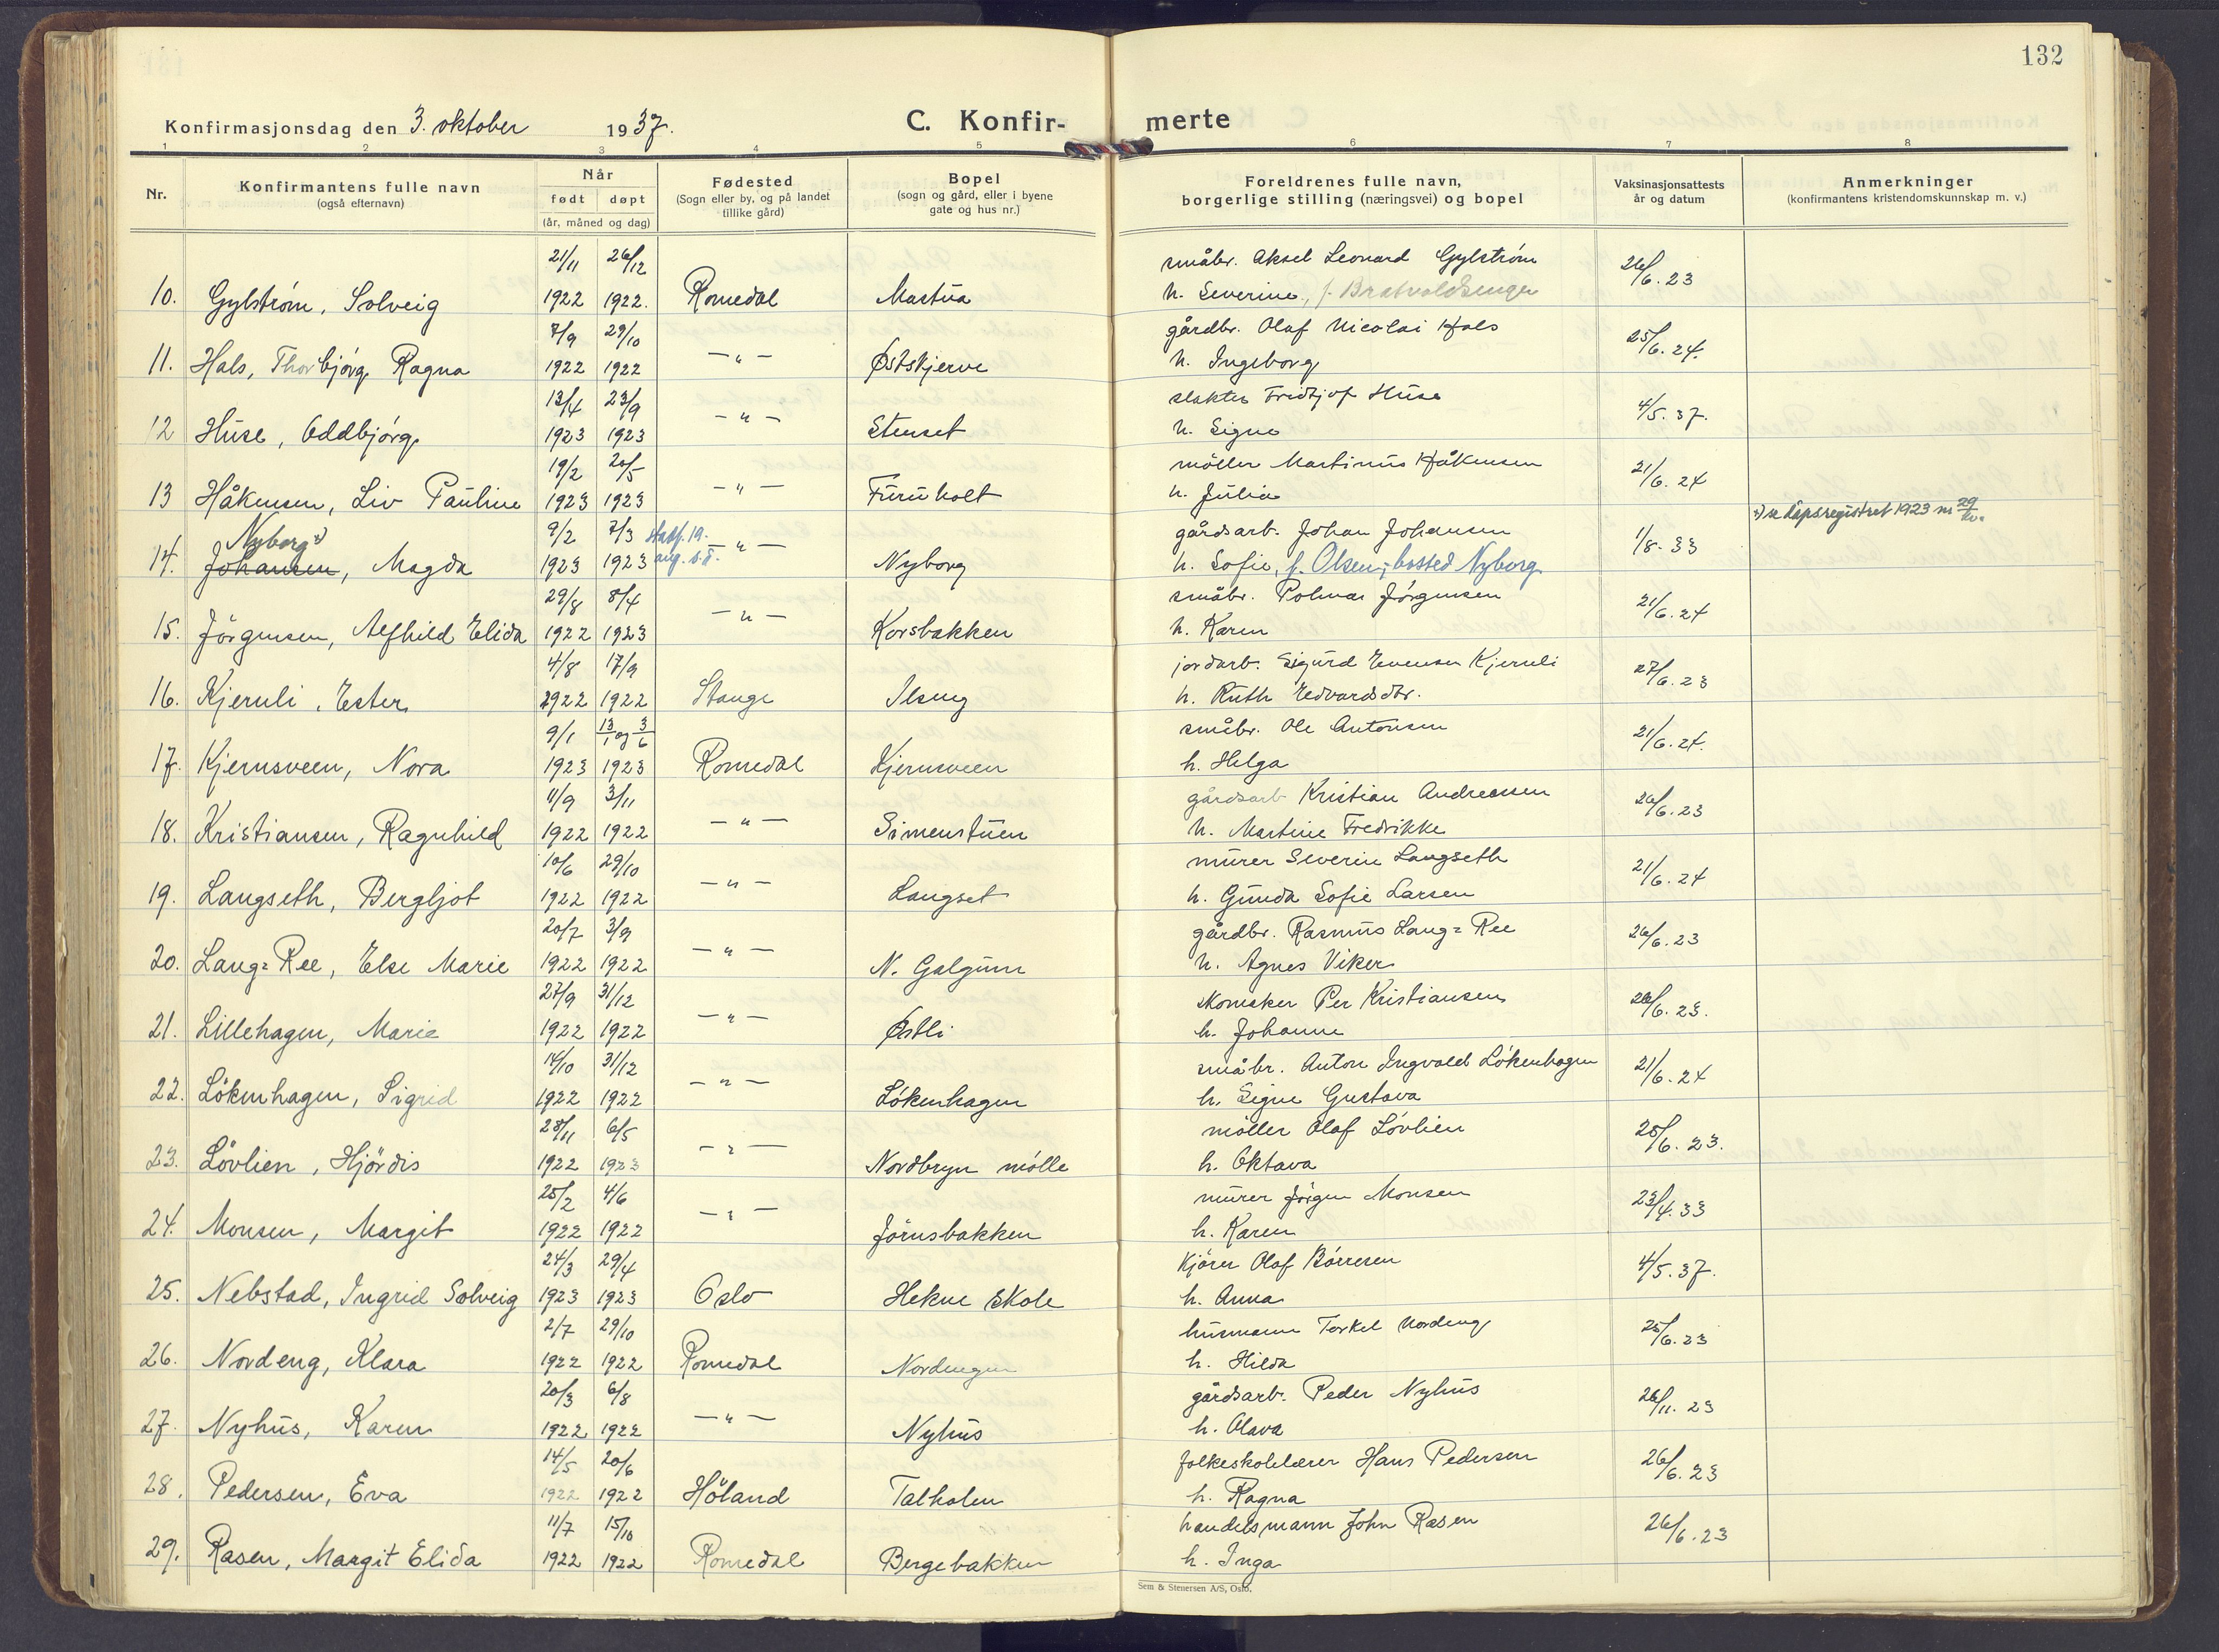 132
Konfirmasjonsdag den 3. oktober 1937.
C. Konfir- merte
1 2 3 4 5 6 7 8
Nr.
Konfirmantens fulle navn
(også efternavn)
Når
født døpt
(år, måned og dag)
Fødested
(Sogn eller by, og på landet
tillike gård)
Bopel
(sogn og gård, eller i byene
gate og hus nr.)
Foreldrenes fulle navn,
borgerlige stilling (næringsvei) og bopel
Vaksinasjonsattests
år og datum
Anmerkninger
(konfirmantens kristendomskunnskap m. v.)
21/11 26/12 småbr. Aksel Leonard Gylström 26/6. 23
10. Gylström, Solveig 1922 1922. Romedal Mastua h. Severine, f. Bratvoldsenger
7/9 29/10 gårdbr. Olaf Nicolai Hals 25/6. 24.
11. Hals, Thorbjörg Ragna 1922 1922 -"- Østskjerve h. Ingeborg
13/4 23/9 slakter Fredtjof Huse 4/5. 37.
12 Huse, Oddbjörg 1923 1923 -"- Stenset h. Signe
19/2 20/5 möller Martinus Håkensen 21/6. 24
13 Håkensen, Liv Pauline 1923 1923 -"- Furuholt h. Julia
x) se dåpsregistret 1923 nr 29
Nyborg x) 9/2 7/3 gårdsarb. Johan Johansen 1/8. 33
14. Johansen, Magda 1923 1923 -"- Nyborg h. Sofie, f. Olsen, bosted Nyborg
29/8 8/4 småbr. Polmar Jörgensen 21/6. 24
15. Jörgensen, Alfhild Elida 1922 1923 -"- Korsbakken h. Karen
4/8 17/9 jordarb. Sigurd Evensen Kjernli 27/6. 23
16. Kjernli, Ester 1922 1922 Stange Ilseng h. Ruth Edvardsdtr.
9/1 13/1 og 3/6 småbr. Ole Antonsen 21/6. 24.
17. Kjernsveen, Nora 1923 1923 Romedal Kjernsveen h. Helga
11/9 3/11 gårdsarb Kristian Andreassen 26/6. 23
18. Kristiansen, Ragnhild 1922 1922 -"- Simenstuen h. Martine Fredrikke
10/6 29/10 murer Severin Langseth 21/6. 24
19. Langseth, Bergljot 1922 1922 -"- Langset h. Gunda Sofie Larsen
20/7 3/9 gårdbr. Rasmus Lang=Ree 26/6. 23
20. Lang=Ree, Else Marie 1922 1922 -"- N. Galgum h. Agnes Viker
27/9 31/12 skomaker Per Kristiansen 26/6. 23.
21. Lillehagen, Marie 1922 1922 -"- Østli h. Johanne
14/10 31/12 småbr. Anton Ingvald Lökenhagen 21/6. 24
22. Lökenhagen, Sigrid 1922 1922 -"- Lökenhagen h. Signe Gustava
28/11 6/5 möller Olaf Lövlien 25/6. 23.
23. Lövlien, Hjördis 1922 1923 -"- Nordbryn mölle h. Oktava
25/2 4/6 murer Jörgen Monsen 23/4. 33
24. Monsen, Margit 1922 1922 -"- Jörnsbakken h. Karen
24/3 29/4 kjörer Olaf Börresen 4/5. 37.
25. Nebstad, Ingrid Solveig 1923 1923 Oslo Hekne skole h. Anna
2/7 29/10 husmann Torkel Nordeng 25/6. 23
26. Nordeng, Klara 1922 1922 Romedal Nordengen h. Hilda
20/3 6/8 gårdsarb. Peder Nyhus 26/11. 23
27. Nyhus, Karen 1922 1922 -"- Nyhus h. Olava
14/5 20/6 folkeskolelærer Hans Pedersen 26/6. 23
28. Pedersen, Eva 1922 1922 Höland Talholen h. Ragna
11/7 15/10 handelsmann John Rasen 26/6. 23
29. Rasen, Margit Elida 1922 1922 Romedal Bergebakken h. Inga
Sem & Stenersen A/S, Oslo.